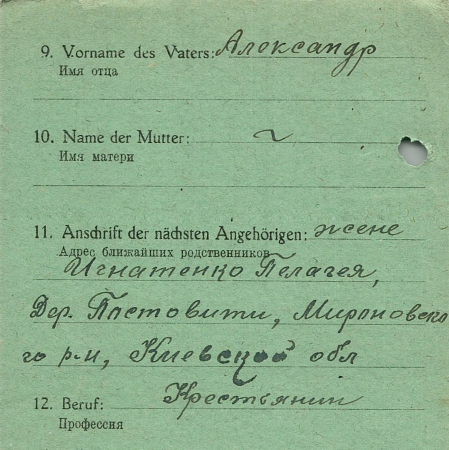 9. Vorname des Vaters: Александр
Имя отца
10. Name der Mutter: ~
Имя матери
11. Anschrift der nächsten Angehörigen: жене
Адрес ближайших родственников
Игнатенко Пелагея,
Дер. Пустовити, Мироновско
го р-н, Киевской обл
12. Beruf: Крестьянин
Профессия